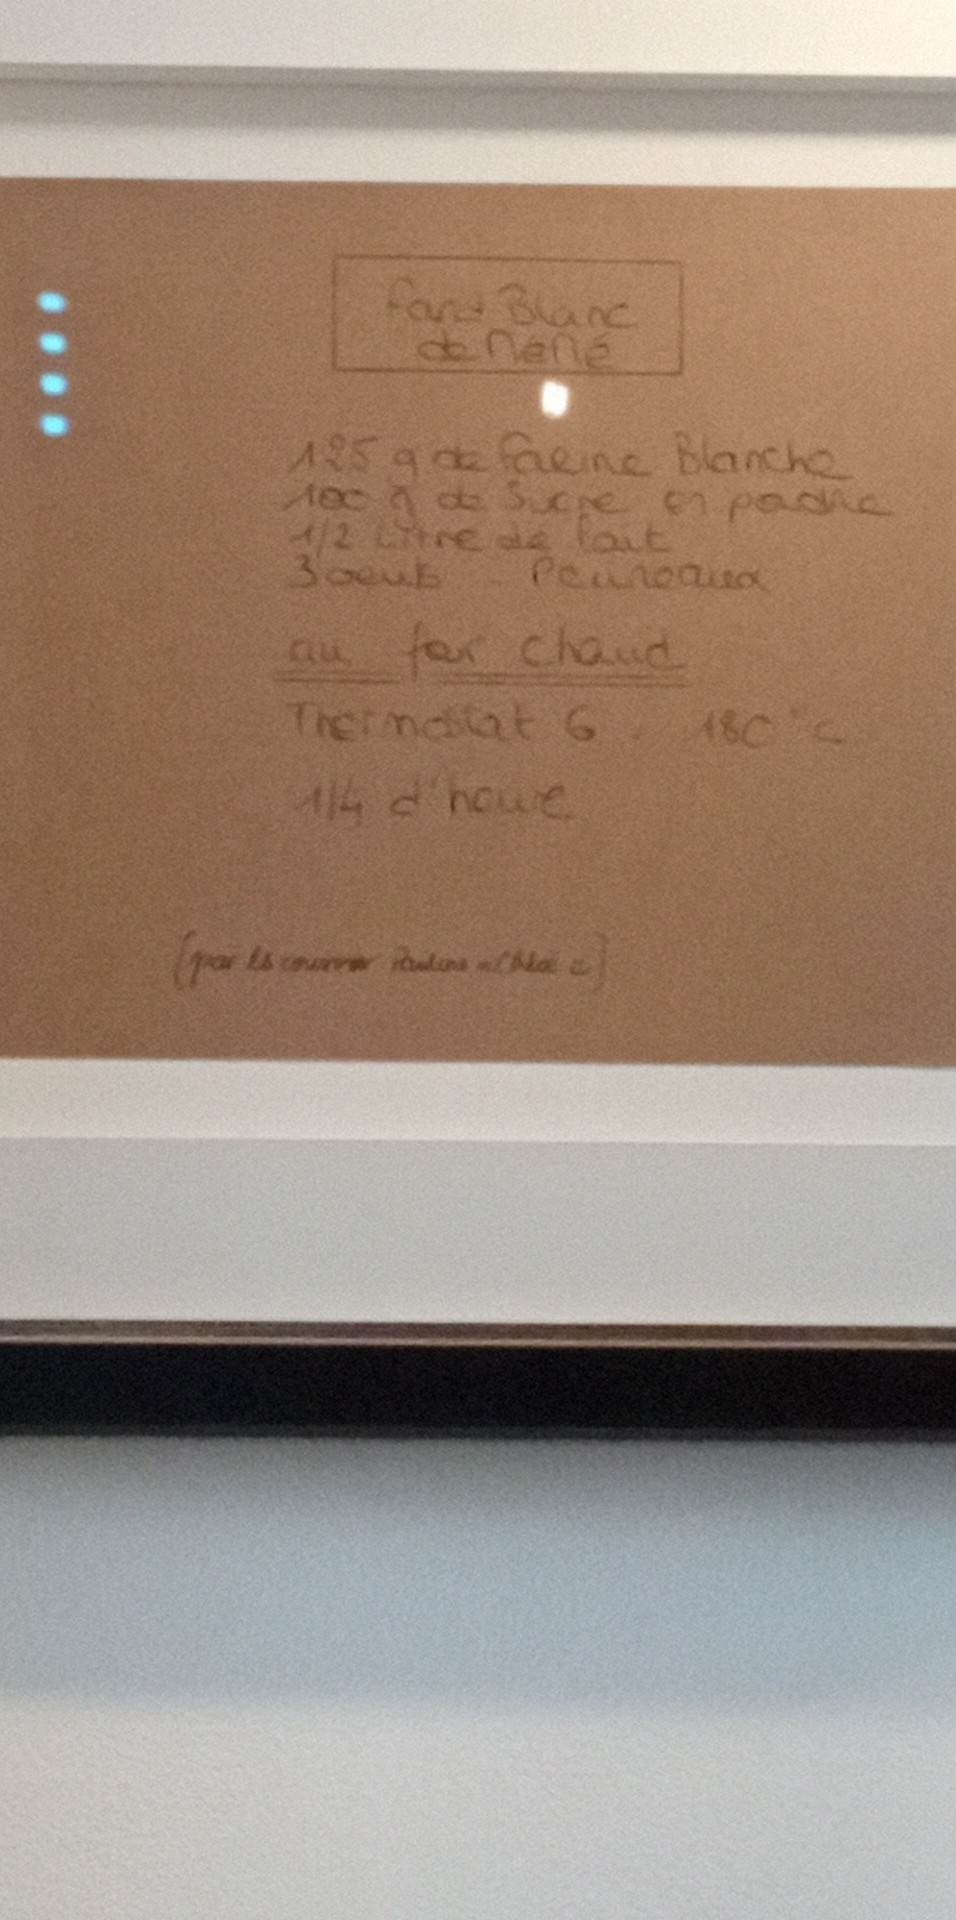 Fard Blanc
de Mémé
125 g de farine Blanche
100 g de Sucre en poudre
1/2 Litre de lait
3 oeufs
au four chaud
Thermostat 6 . 180 °C
1/4 d'heure
[par les Pauline